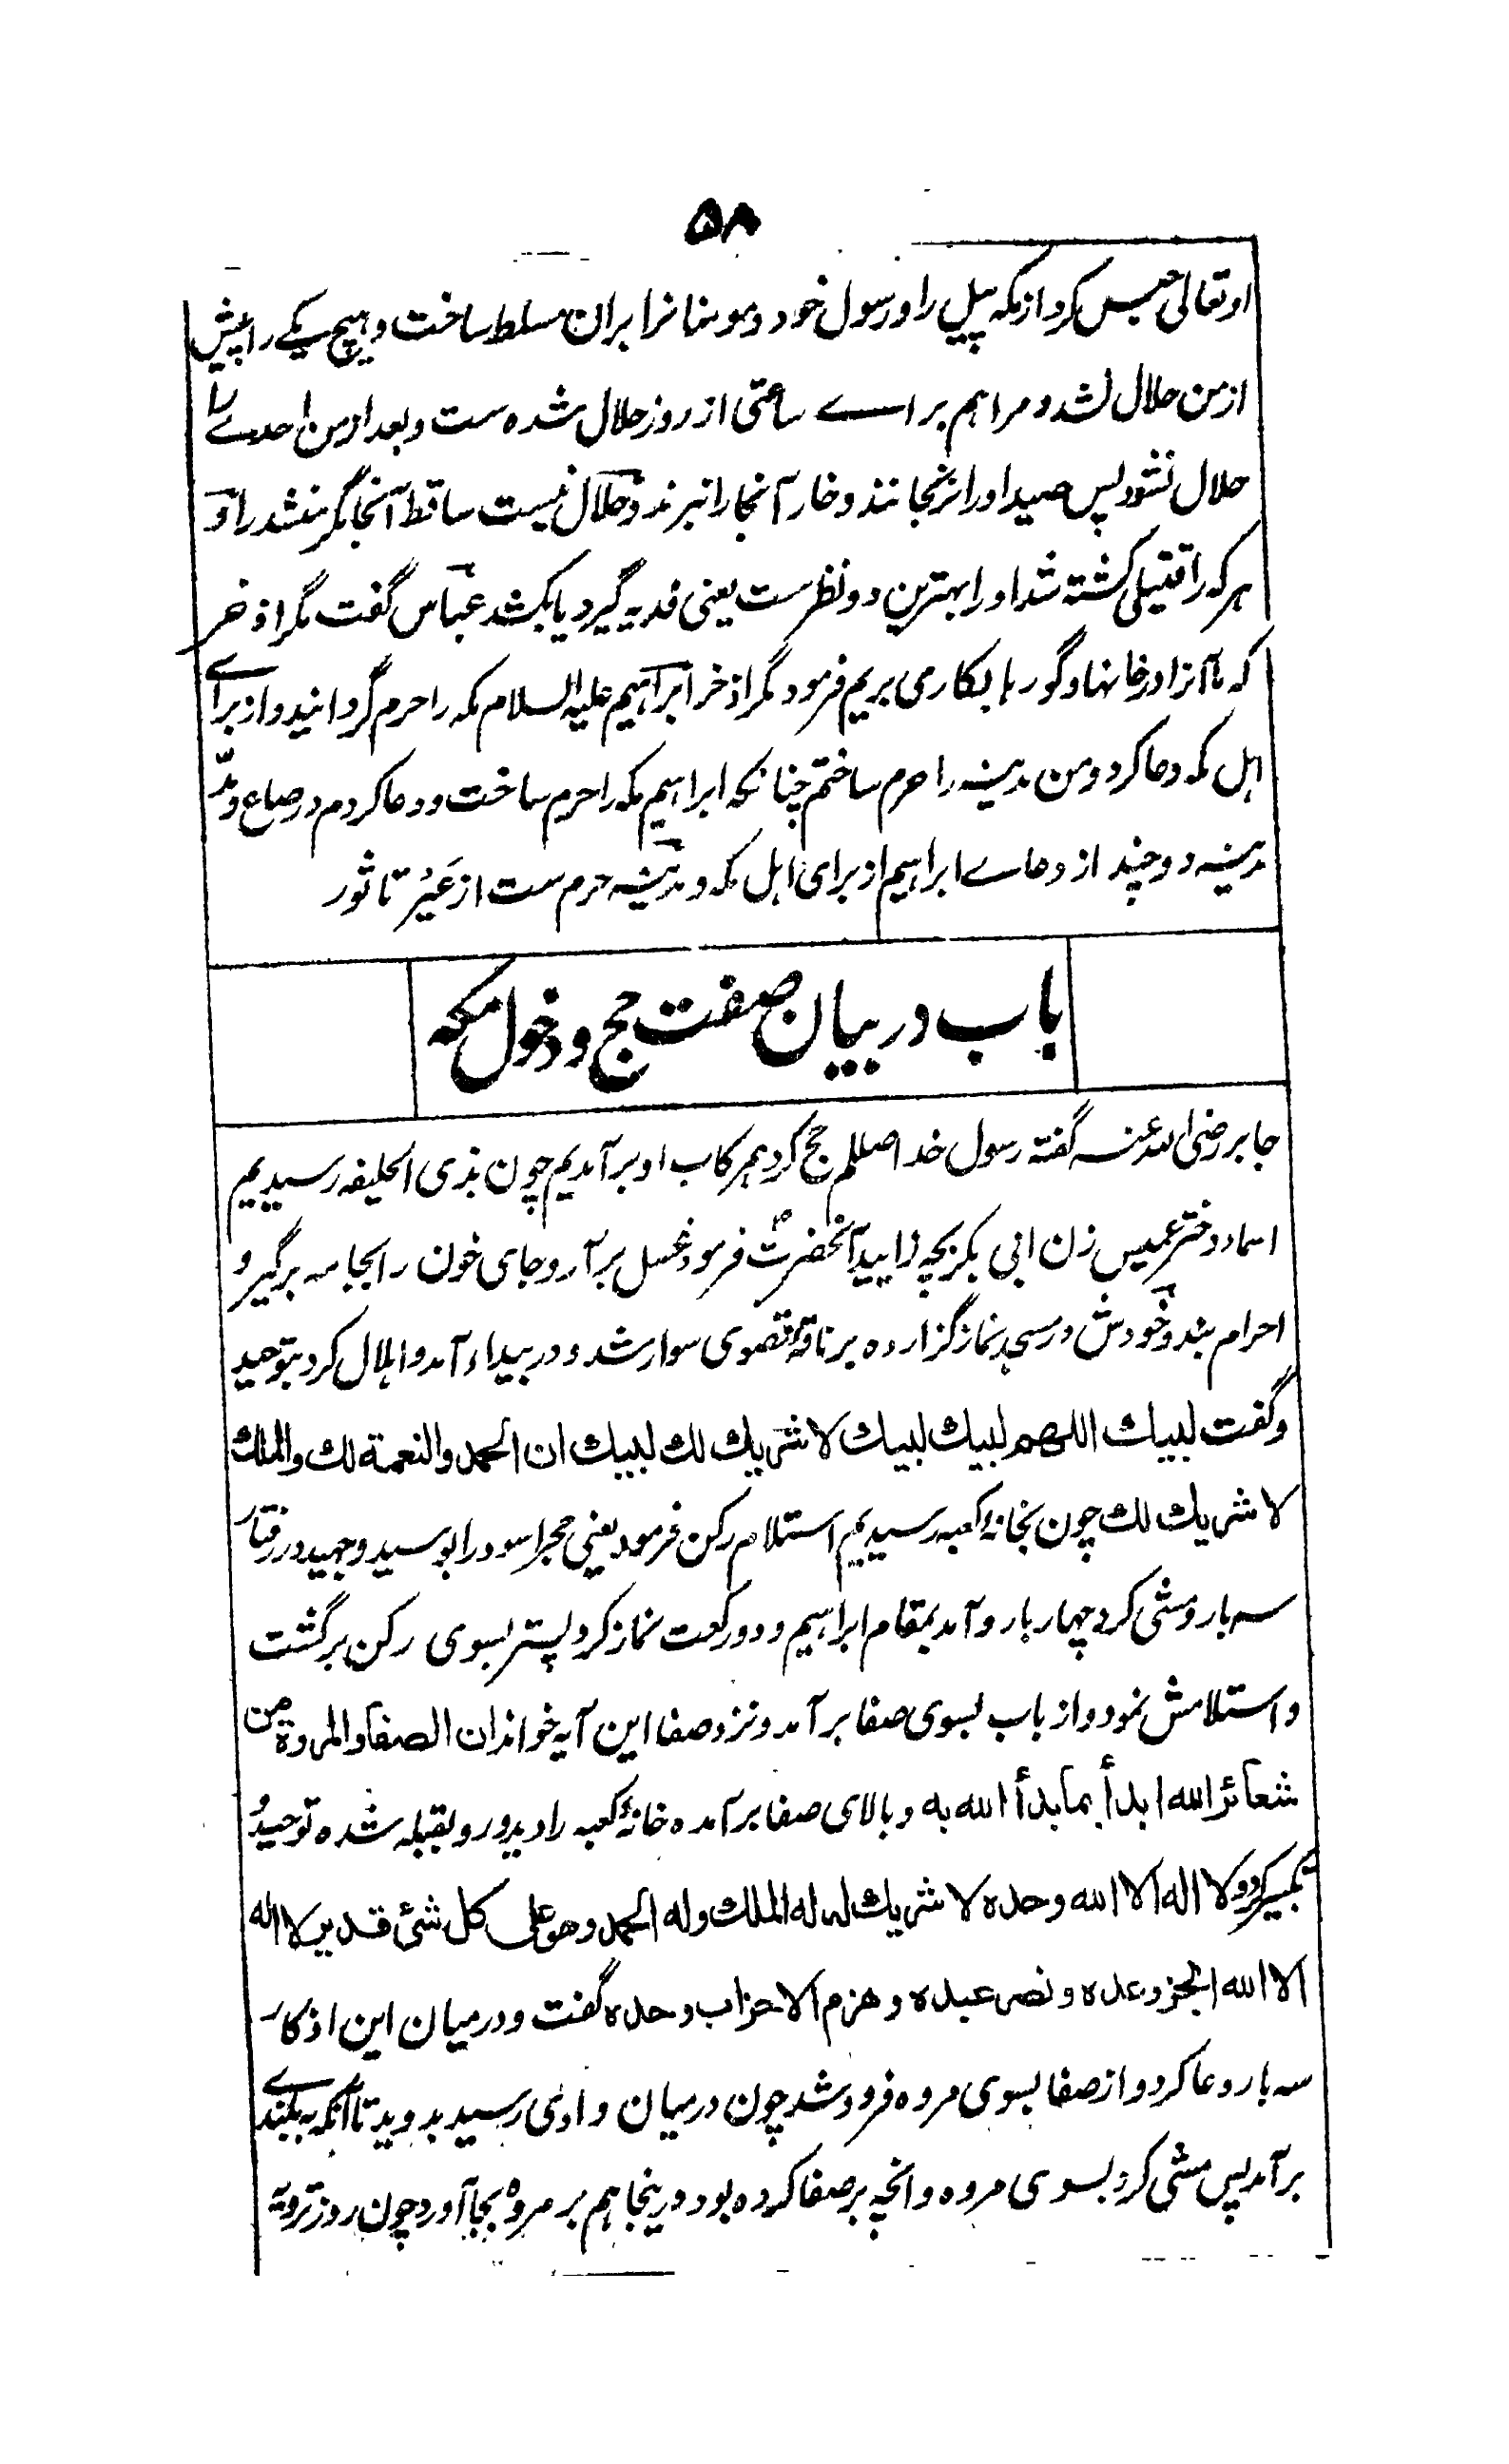 ۵۸
او تعالی حبس کرد از مکه پیل را و رسول خود و مومنانرا بران مسلط ساخت و هیچ یکے را پیش
از من حلال نشد و مرا هم براے ساعتی از روز حلال شده ست و بعد از من احدے را
حلال نشود پس صید او را نرنجانند و خار آنجا را نبرند و حلال نیست ساقط آنجا مگر منشد را و
هر که را قتیلی کشته شد او را بهترین دو نظر ست یعنی فدیه گیرد یا بکشد عباس گفت مگر اذخر
که ما آنرا در خانها و گورها بکار می بریم فرمود مگر اذخر ابراهیم علیه السلام مکه را حرم گردانید و از براے
اهل مکه دعا کرد و من مدینه را حرم ساختم چنانکه ابراهیم مکه را حرم ساخت و دعا کردم در صاع و مدّ
مدینه دو چند از دعاے ابراهیم از برای اهل مکه و مدینه حرم ست از عَیْر تا ثور
باب در بیان صفت حج و دخول مکه
جابر رضی الله عنه گفته رسول خدا صللم حج کرد همرکاب او بر آمدیم چون بذی الحلیفه رسیدیم
اسماء دختر عمیس زن ابی بکر بچه زایید آنحضرتؐ فرمود غسل برآر و جای خون را بجامه برگیر و
احرام بند و خودش در مسجد نماز گزارده بر ناقهٔ قصوی سوار شد و در بیداء آمد و اهلال کرد بتوحید
و گفت لبيك اللهم لبيك لبيك لا شريك لك لبيك ان الحمد والنعمة لك والملك
لا شريك لك چون بخانهٔ کعبه رسیدیم استلام رکن فرمود یعنی حجر اسود را بوسید و جهید در رفتار
سه بار و مشی کرد چهار بار و آمد بمقام ابراهیم و دو رکعت نماز کرد پستر بسوی رکن برگشت
و استلامش نمود و از باب بسوی صفا بر آمد و نزد صفا این آیه خواند ان الصفا والمروة من
شعائر الله ابدأ بما بدأ الله به و بالای صفا بر آمده خانهٔ کعبه را دید و رو بقبله شده توحید و
تکبیر کرد و لا اله الا الله وحده لا شريك له له الملك وله الحمد وهو على كل شئ قدير لا اله
الا الله انجز وعده ونصر عبده وهزم الاحزاب وحده گفت و در میان این اذکار
سه بار دعا کرد و از صفا بسوی مروه فرود شد چون درمیان وادی رسید بدوید تا آنکه به بلندے
بر آمد پس مشی کرد بسوی مروه و آنچه بر صفا کرده بود درینجا هم بر مروه بجا آورد چون روز ترویه